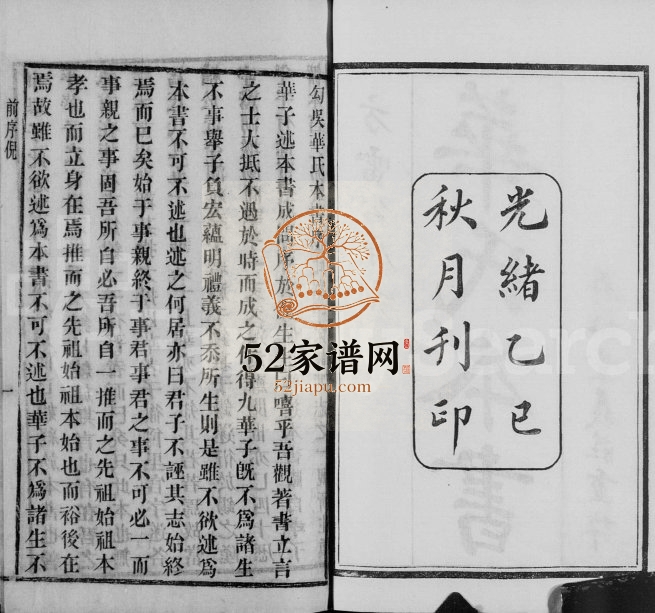 光緒乙巳
秋月刊印
勾吳華氏本書序
華子述本書成 序於 生 嘻乎吾觀著書立言
之士大抵不遇於時而成之 得九華子既不為諸生
不事舉子負宏蘊明禮義不忝所生則是雖不欲述為
本書不可不述也述之何居亦曰君子不誣其志始終
焉而已矣始于事親終于事君事君之事不可必一而
事親之事固吾所自必吾所自一推而之先祖始祖本
孝也而立身在焉推而之先祖始祖本始也而裕後在
焉故雖不欲述為本書不可不述也華子不為諸生不
前序倪
一
52家谱网
52jiapu.com